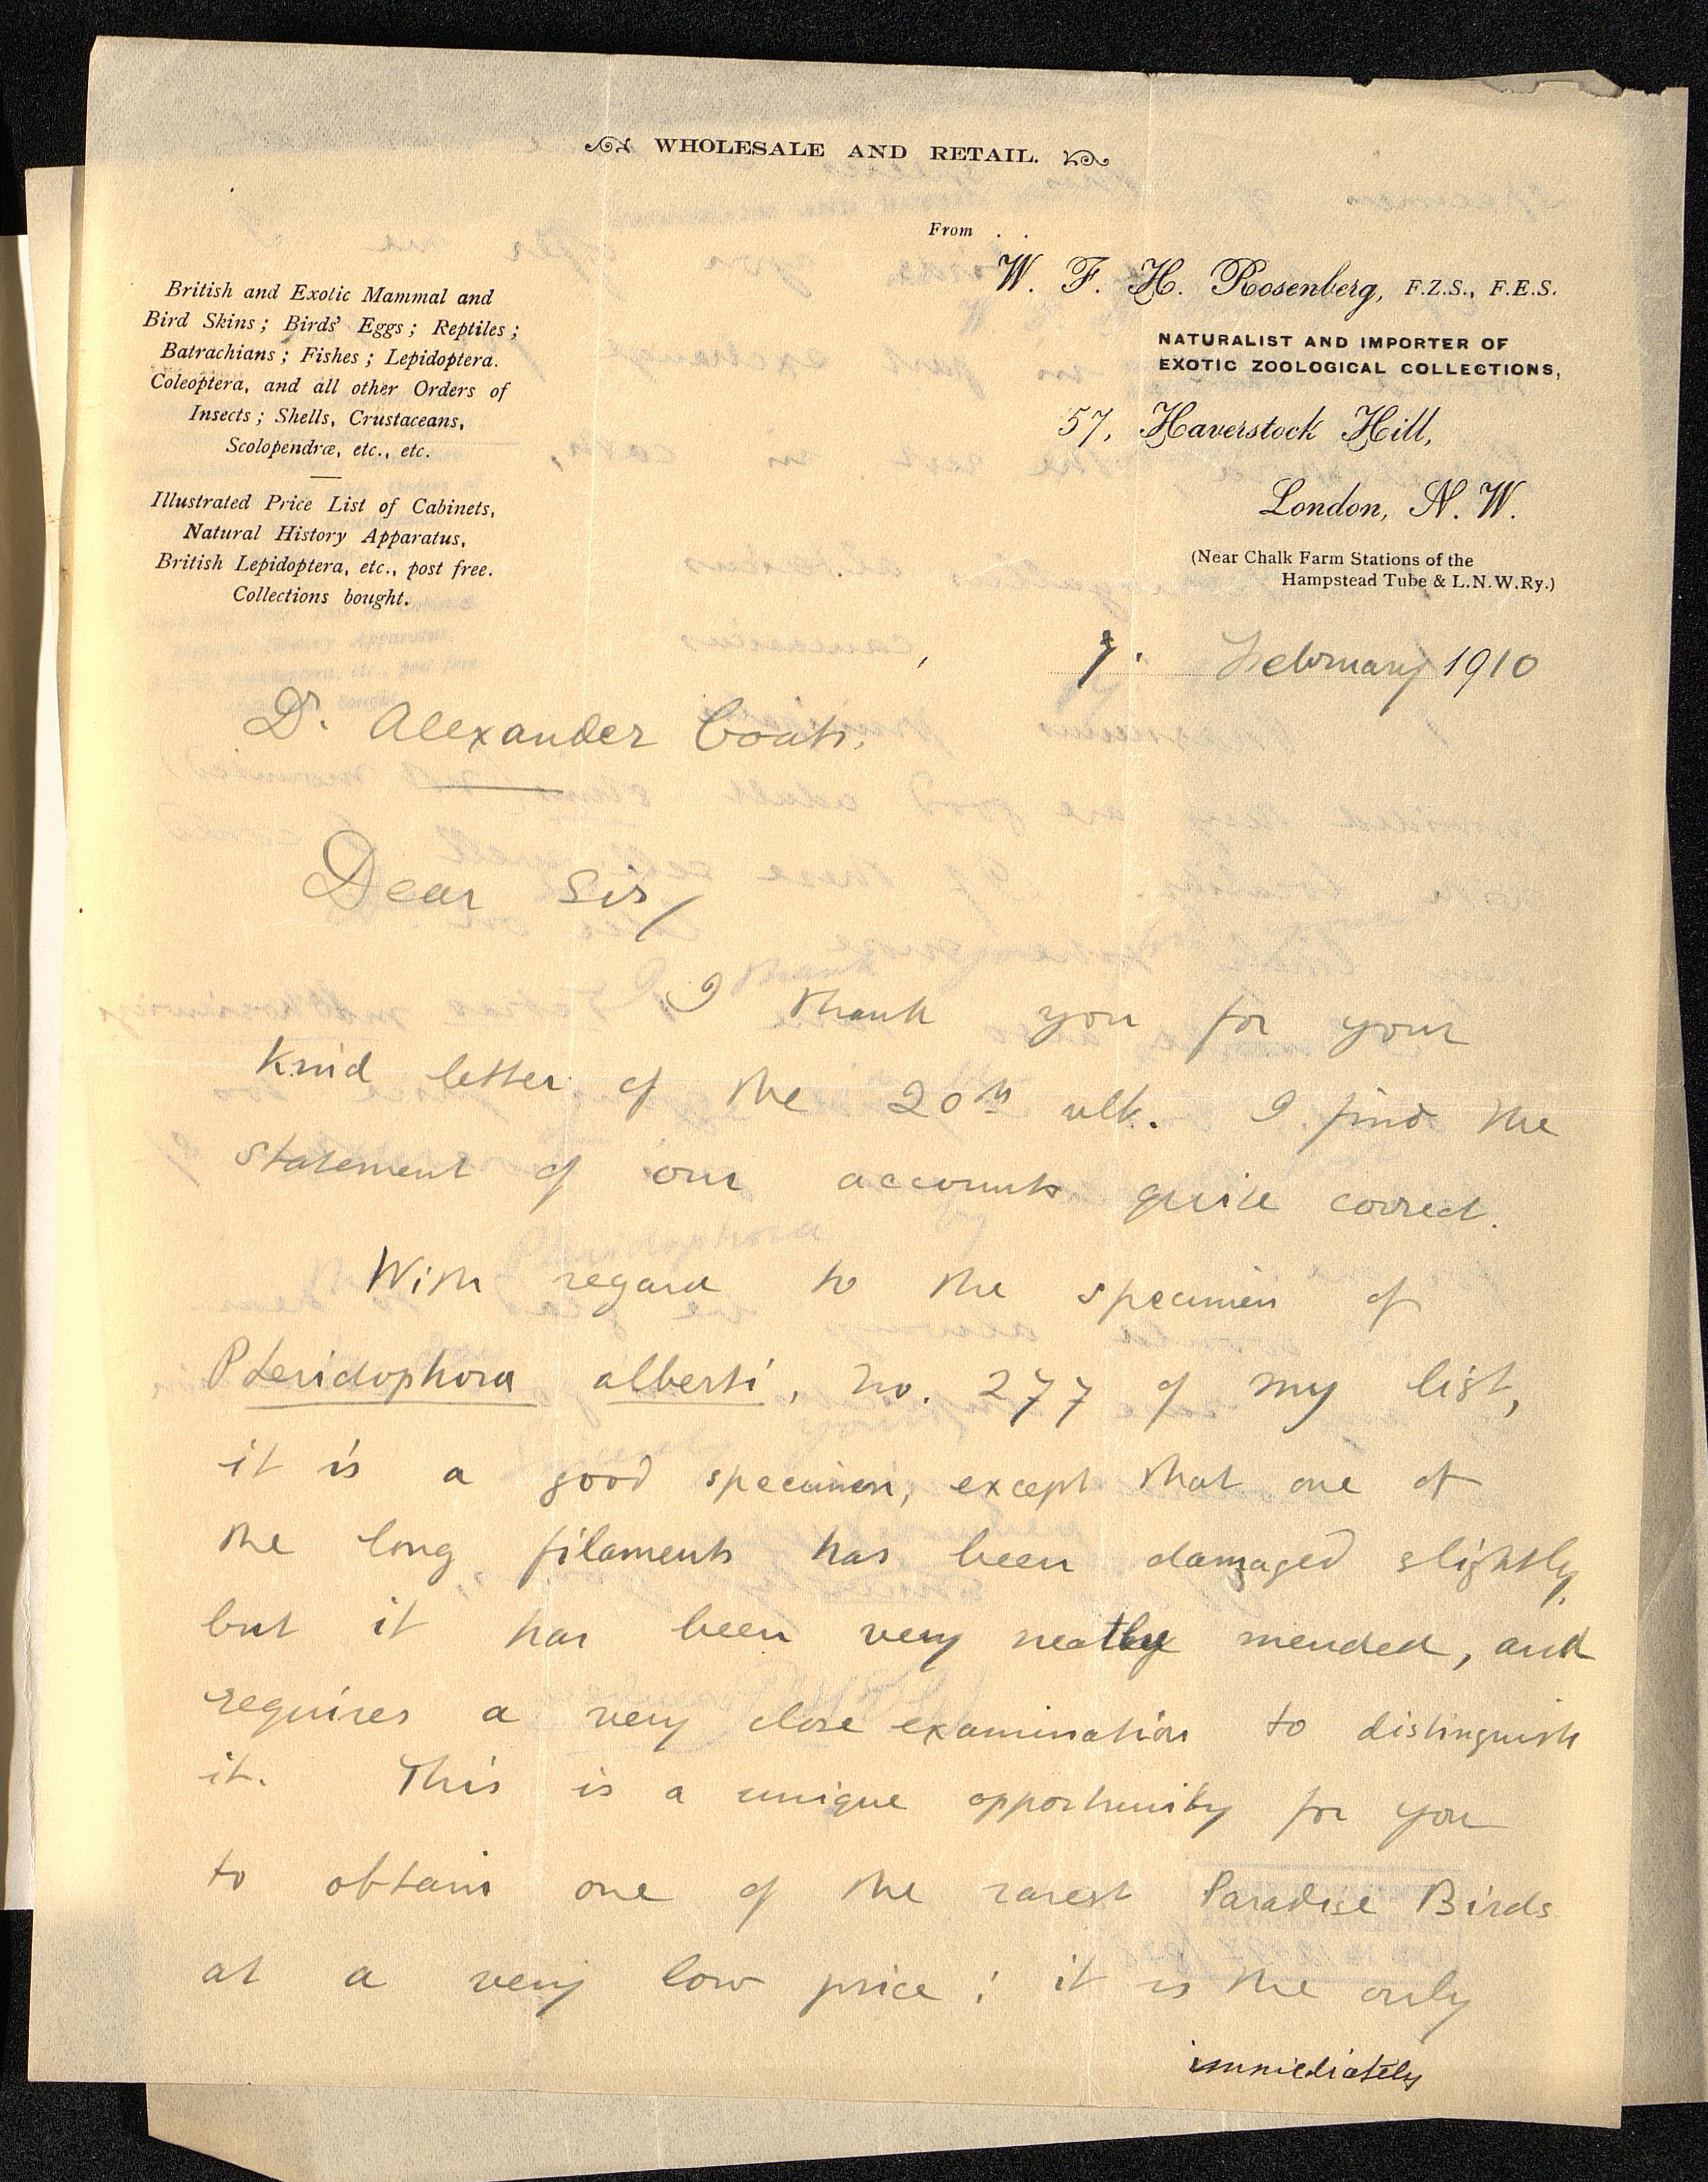 WHOLESALE AND RETAIL.
From . .
W. F. H. Rosenberg, F.Z.S., F.E.S.
NATURALIST AND IMPORTER OF
EXOTIC ZOOLOGICAL COLLECTIONS,
57, Haverstock Hill,
London, N. W.
(Near Chalk Farm Stations of the
Hampstead Tube & L.N.W.Ry.)
British and Exotic Mammal and
Bird Skins; Birds' Eggs; Reptiles;
Batrachians; Fishes; Lepidoptera.
Coleoptera, and all other Orders of
Insects; Shells, Crustaceans,
Scolopendræ, etc., etc.
Illustrated Price List of Cabinets,
Natural History Apparatus,
British Lepidoptera, etc., post free.
Collections bought.
February 1910
Dr. Alexander
Dear Sir,
I thank you for your
kind letter of the 20th ult. I find the
statement of our accounts quite correct.
With regard to the specimen of
Pteridophora alberti, no. 277 of my list,
it is a good specimen, except that one of
the long filaments has been damaged slightly,
but it has been very neatly mended, and
requires a very close examination to distinguish
it. This is a unique opportunity for you
to obtain one of the rarest Paradise Birds
at a very low price; it is the only
immediately